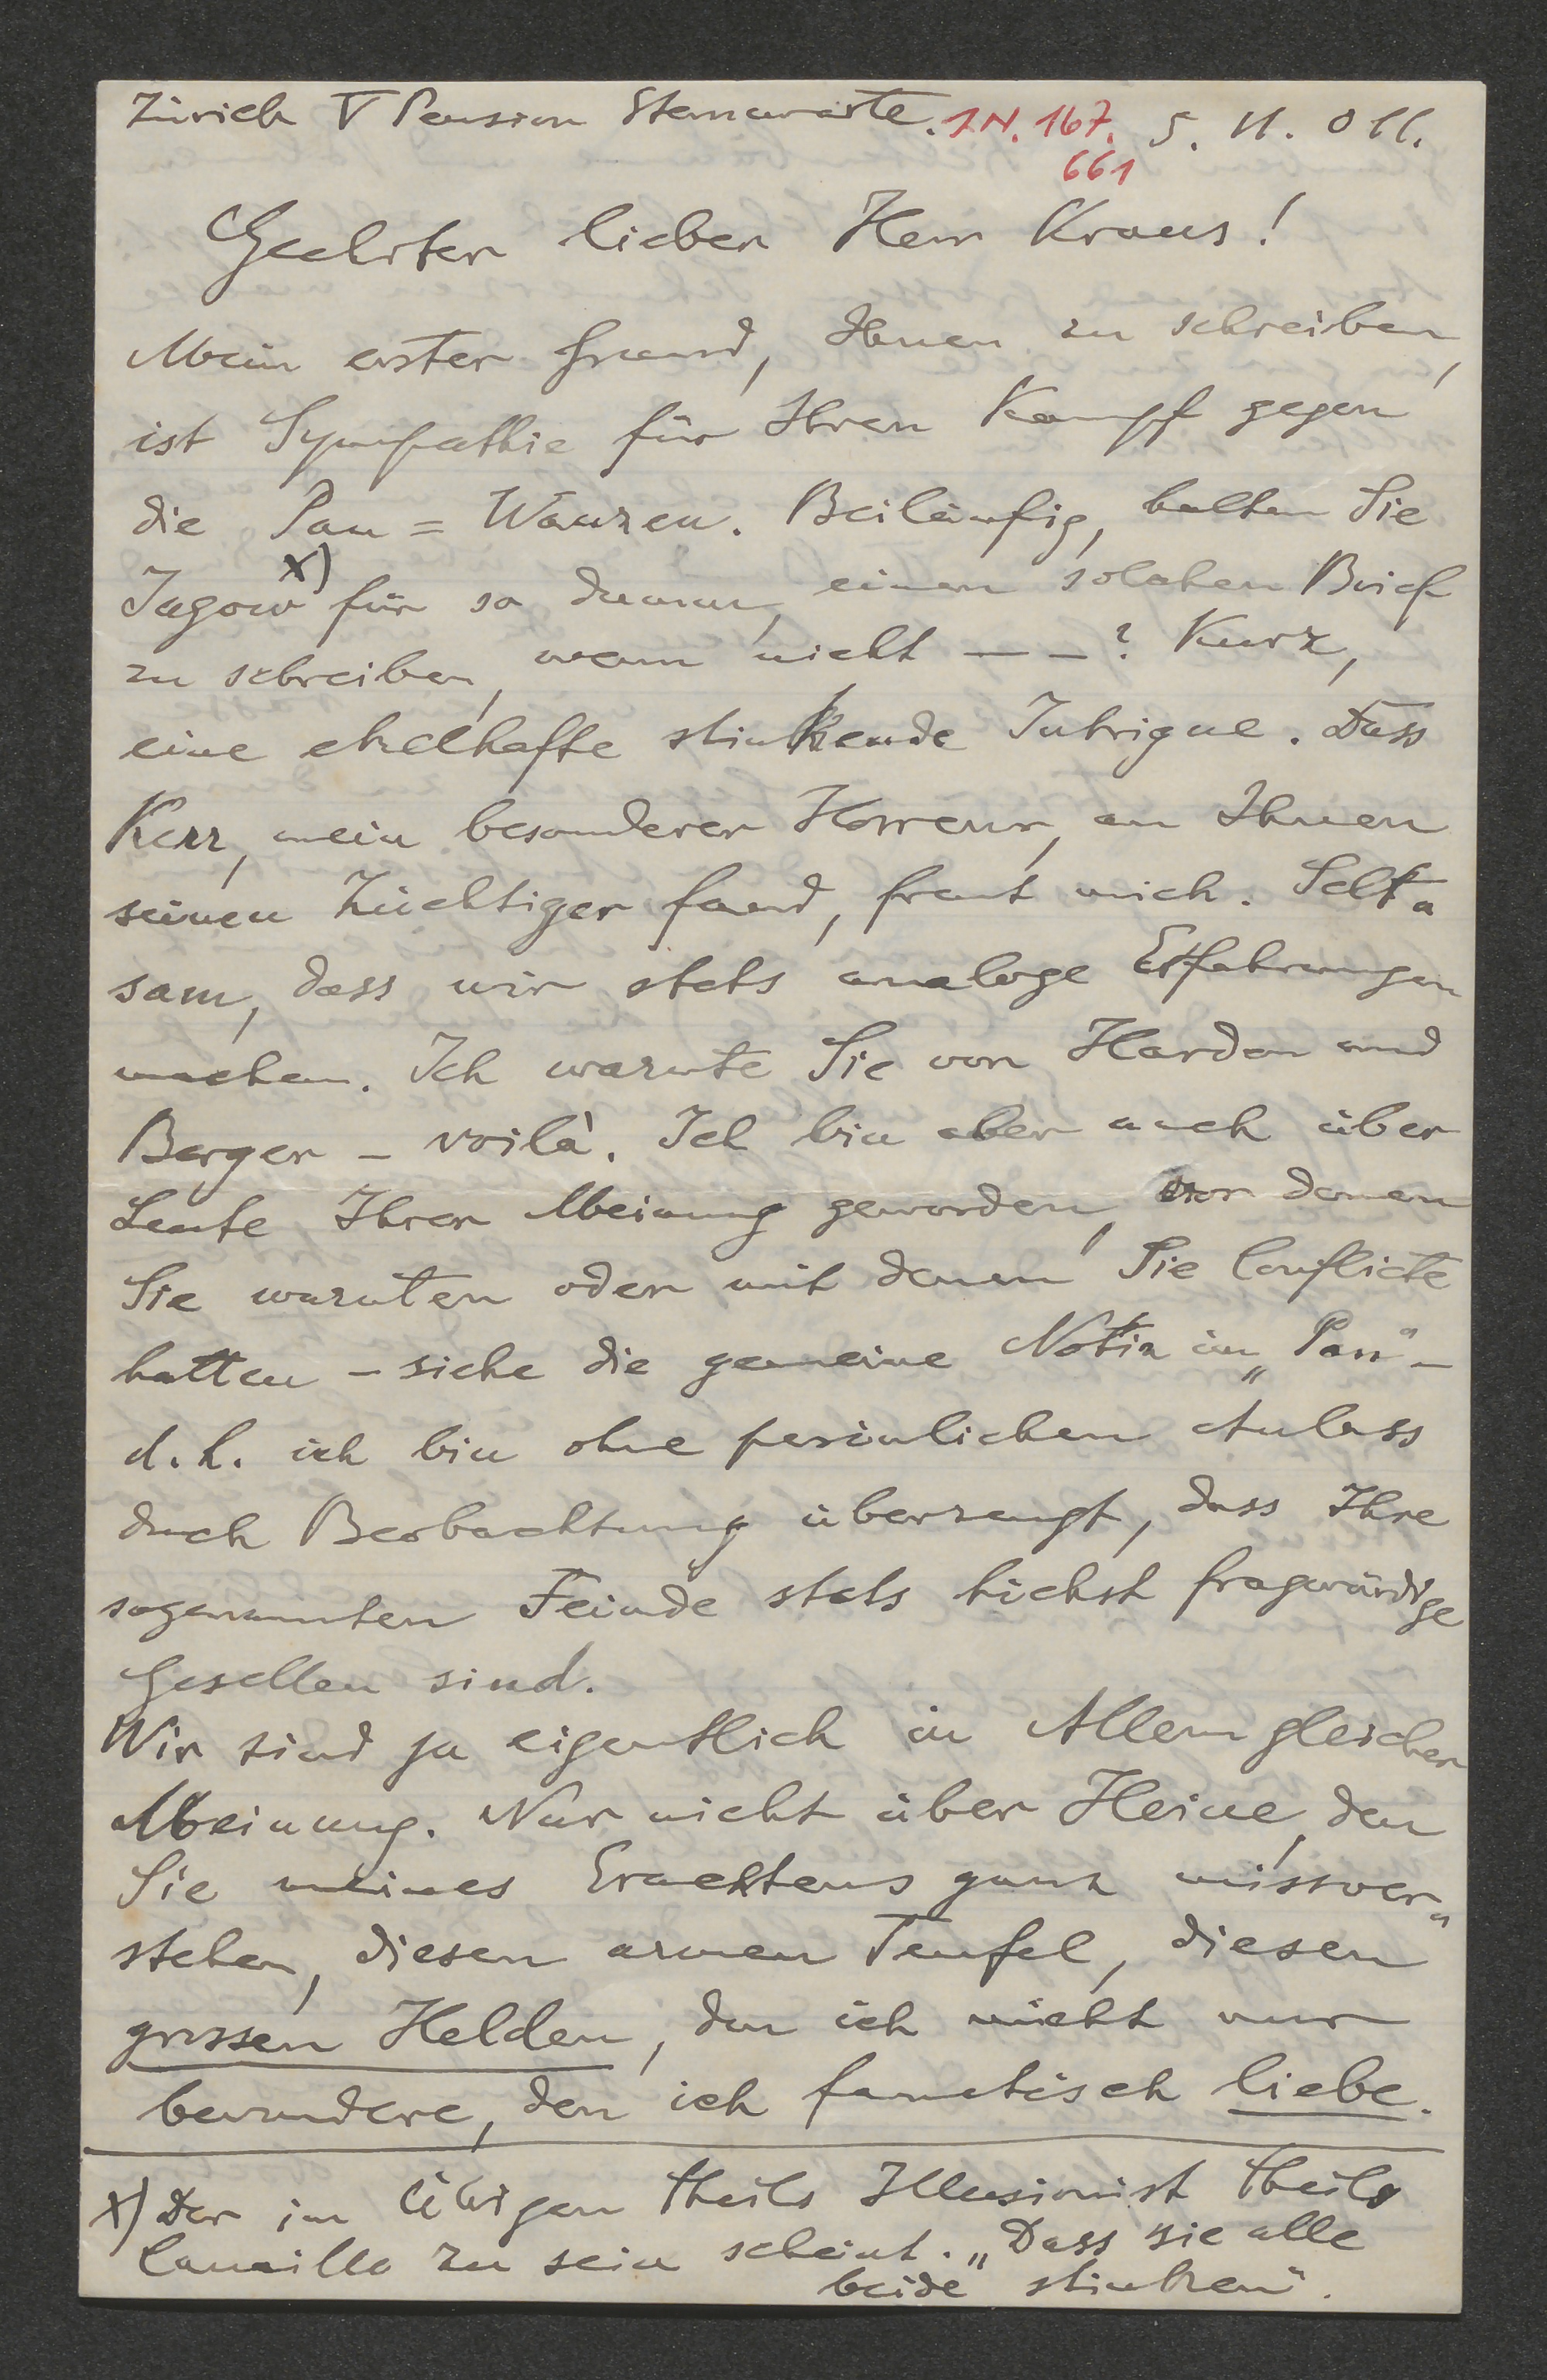 Zürich V Pension Sternwarte. I N. 167. 5. 11. 011.
661
Geehrter lieber Herr Kraus!
Mein erster Grund, Ihnen zu schreiben,
ist Sympathie für Ihren Kampf gegen
die Pan = Wanzen. Beiläufig, halten Sie
Jagow x) für so dumm, einen solchen Brief
zu schreiben, wenn nicht – – ? Kurz,
eine ekelhafte stinkende Intrigue. Dass
Kerr, mein besonderer Horreur, an Ihnen
seinen Züchtiger fand, freut mich. Selt=
sam, dass wir stets analoge Erfahrungen
machen. Ich warnte Sie von Harden und
Berger – voilà. Ich bin aber auch über
Leute Ihrer Meinung geworden, vor denen
Sie warnten oder mit denen Sie Conflicte
hatten – siehe die gemeine Notiz im „Pan" –
d. h. ich bin ohne persönlichen Anlass
durch Beobachtung überzeugt, dass Ihre
sogenannten Feinde stets höchst fragwürdige
Gesellen sind.
Wir sind ja eigentlich in Allem gleicher
Meinung. Nur nicht über Heine, den
Sie meines Erachtens ganz missver=
stehen, diesen armen Teufel, diesen
grossen Helden, den ich nicht nur
bewundere, den ich fanatisch liebe.
x) Der im Übrigen theils Illusionist theils
Canaille zu sein scheint. „Dass sie alle
beide stinken".